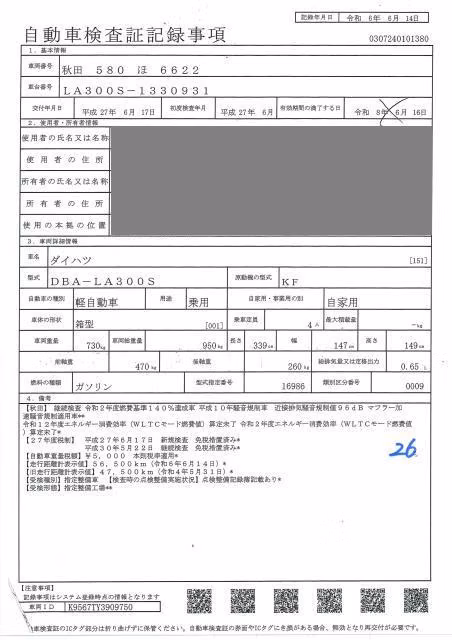 記録年月日 令和 6年 6月 14日
自動車検査証記録事項
0307240101380
1．基本情報
車両番号 秋田 580 ほ 6622
車台番号 LA300S－1330931
交付年月日 平成 27年 6月 17日 初度検査年月 平成 27年 6月 有効期間の満了する日 令和 8年 6月 16日
2．使用者・所有者情報
使用者の氏名又は名称
使用者の住所
所有者の氏名又は名称
所有者の住所
使用の本拠の位置
3．車両詳細情報
車名 ダイハツ [151]
型式 DBA－LA300S 原動機の型式 KF
自動車の種別 軽自動車 用途 乗用 自家用・事業用の別 自家用
車体の形状 箱型 [001] 乗車定員 4人 最大積載量 －kg
車両重量 730kg 車両総重量 950kg 長さ 339cm 幅 147cm 高さ 149cm
前軸重 470kg 後軸重 260kg 総排気量又は定格出力 0.65 L
燃料の種類 ガソリン 型式指定番号 16986 類別区分番号 0009
4．備考
【秋田】 継続検査 令和2年度燃費基準140％達成車 平成10年騒音規制車 近接排気騒音規制値96dB マフラー加
速騒音規制適用車**
令和12年度エネルギー消費効率（WLTCモード燃費値）算定未了 令和2年度エネルギー消費効率（WLTCモード燃費値
）算定未了*
【27年度税制】 平成27年6月17日 新規検査 免税措置済み*
平成30年5月22日 継続検査 免税措置済み*
【自動車重量税額】￥5,000 本則税率適用*
【走行距離計表示値】56,500km（令和6年6月14日）*
【旧走行距離計表示値】47,500km（令和4年5月31日）*
【受検種別】指定整備車 【検査時の点検整備実施状況】点検整備記録簿記載あり*
【受検形態】指定整備工場**
26
【注意事項】
記録事項はシステム登録時点の情報となります
車両ID K9567TY3909750
車検査証のICタグ部分は折り曲げずに保管ください。自動車検査証の券面やICタグにき損がある場合、無効となり再交付が必要です。